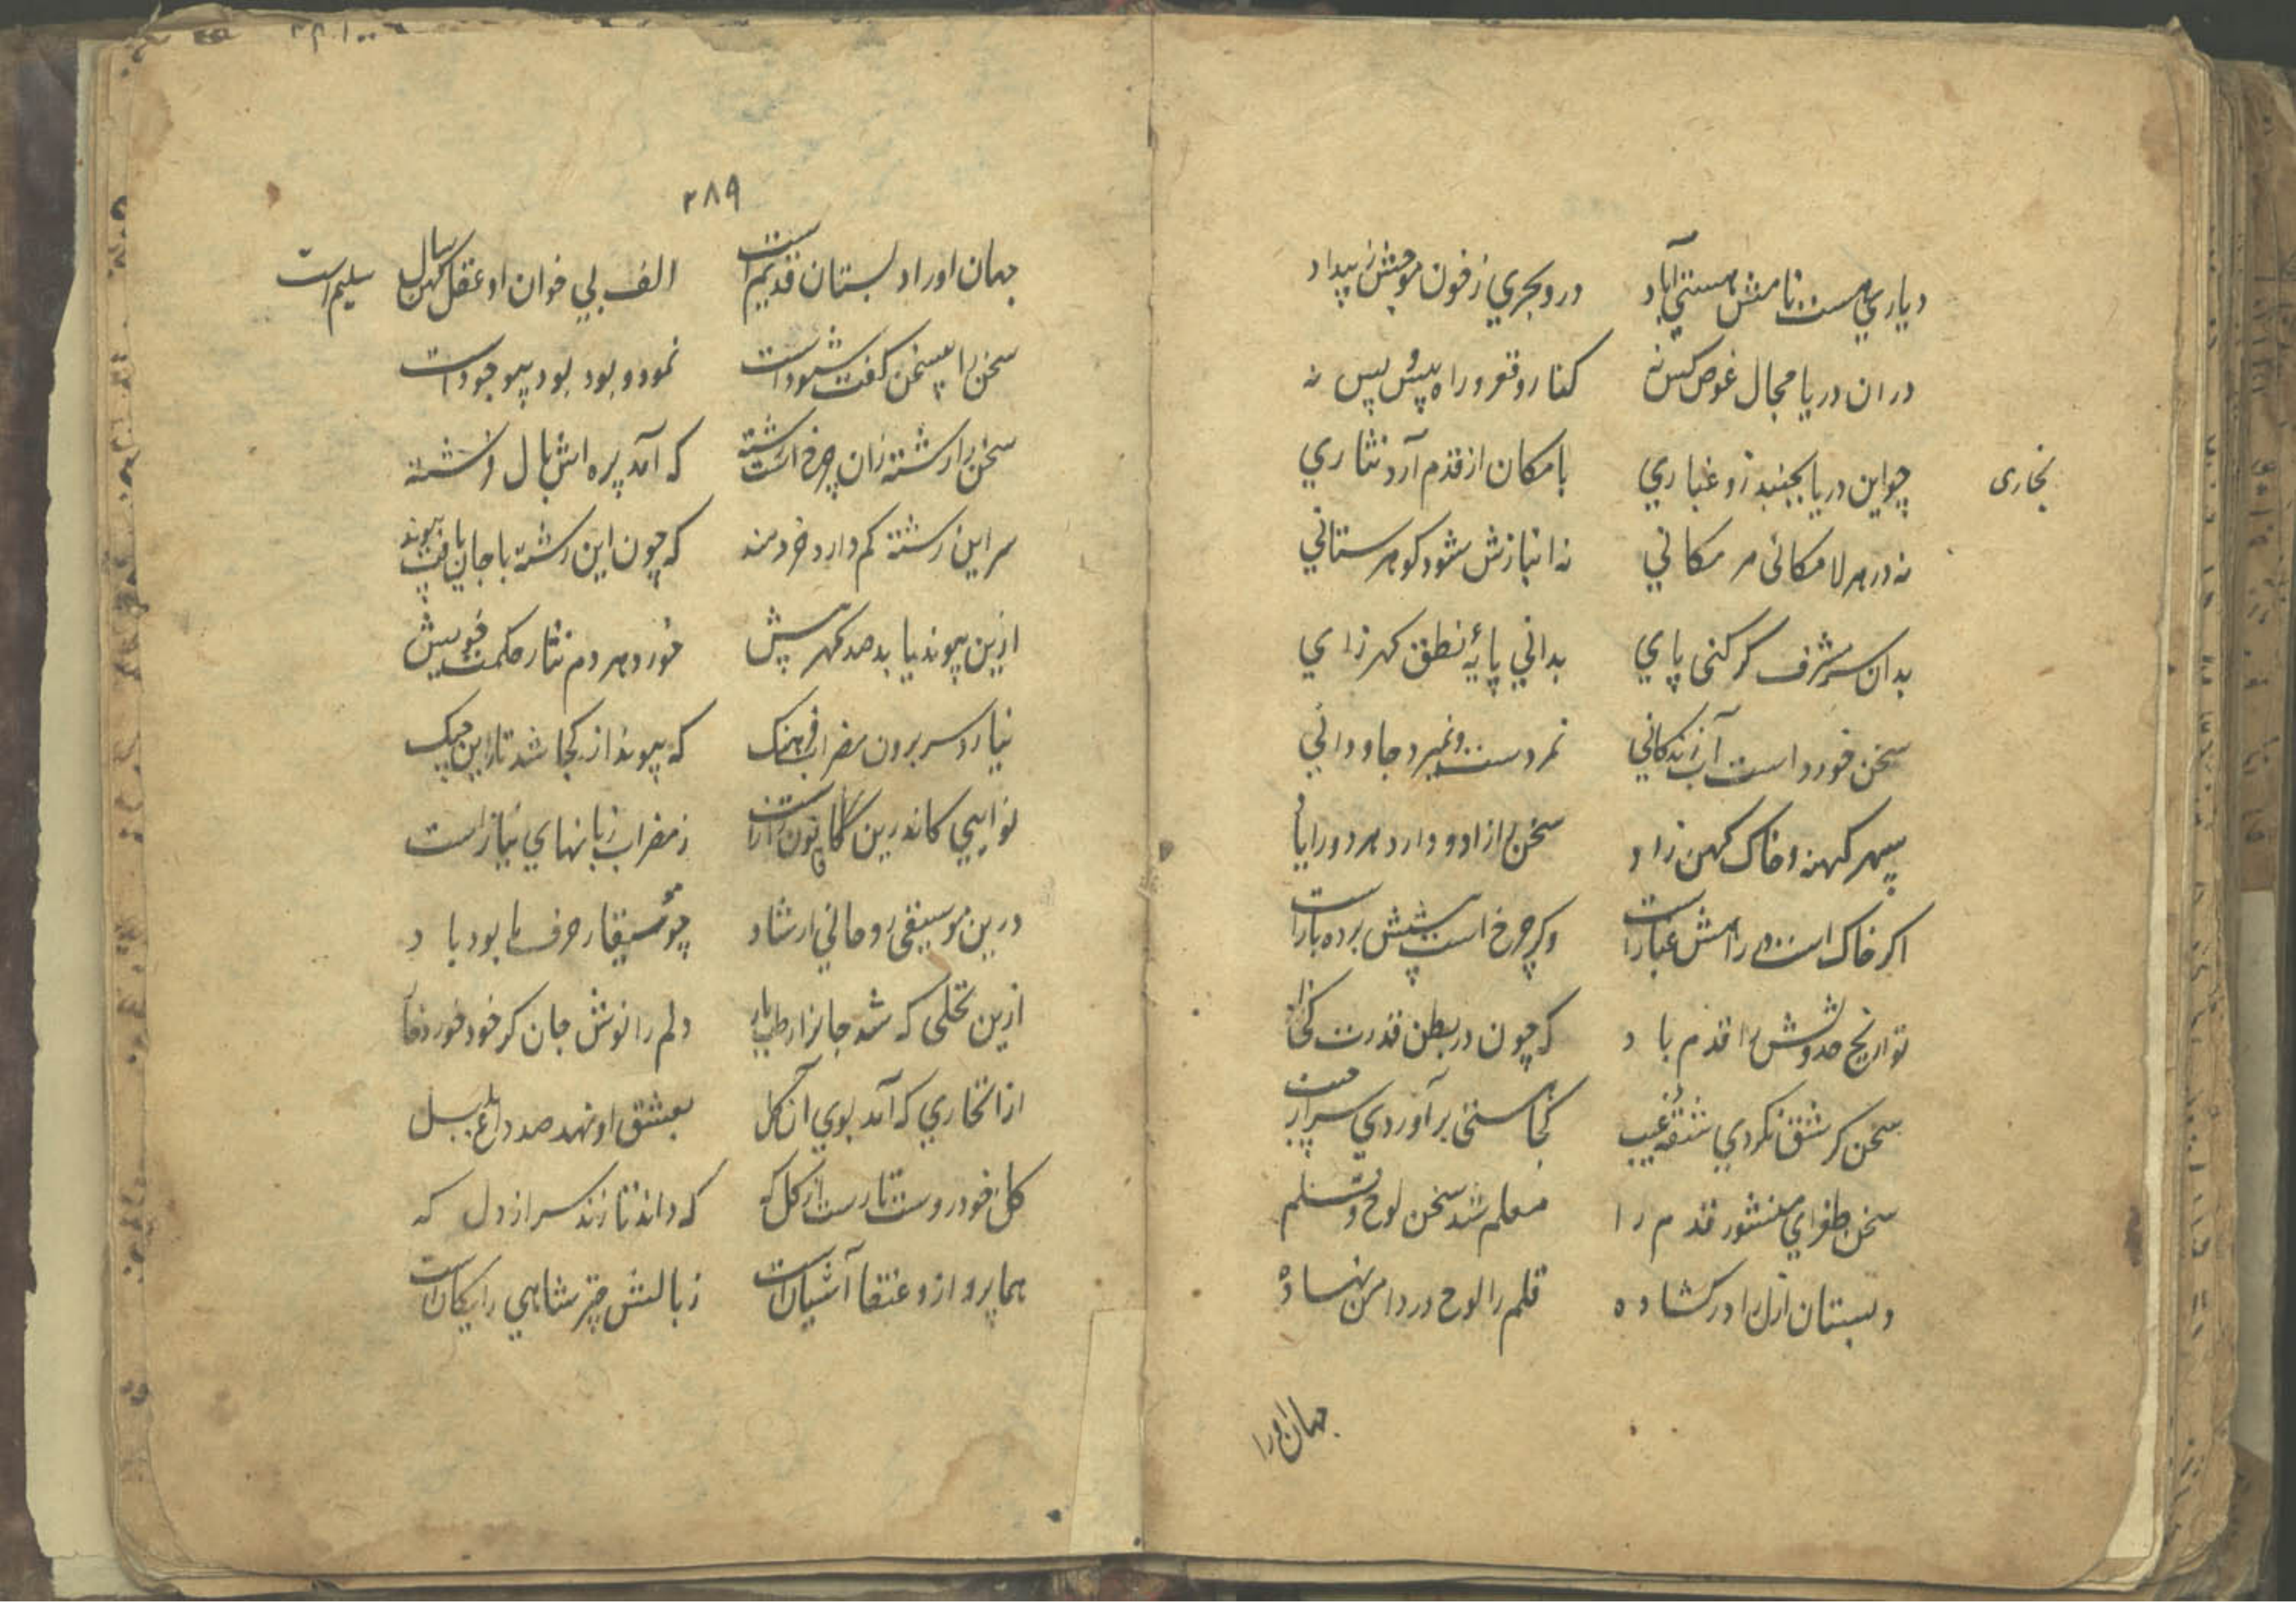 دیاری هست نامش هستی آباد درو بحری ز خون موجش ز بیداد
دران دریا مجال غوص کس نه کنار و قعر و راه پیش و پس نه
چو این دریا بجنبد زو غباری بامکان از قدم آرد نثاری
بخاری
نه در هر لامکانی هر مکانی نه انبازش شود گوهرستانی
بدان سر شرف گر کنی پای بدانی پایهٔ نطق گهرزای
سخن خورد است آب زندگانی نمردست و نمیرد جاودانی
سپهر کهنه و خاک کهن زاد سخن زاد و دارد هر دو را یاد
اگر خاک است در راهش غبار است وگر چرخ است پیشش پرده‌بار است
تواریخ حدوثش را قدم یاد که چون در بطن قدرت
سخن گر شق نکردی شقهٔ غیب کجا هستی برآوردی سر از جیب
سخن طغرای منشور قدم را معلم شد سخن لوح و قلم را
دبستان ازل را در گشاده قلم را لوح در دامن نهاده
جهان او را
۲۸۹
جهان او را دبستان قدیم است الف بی خوان او عقل کهن سال سلیم است
سخن را پسخن گفت شنود است نمود و بود بود پیوجود است
سخن را رشته زان چرخ است رشته که آمد پره‌اش بال فرشته
سر این رشته کم دارد خردمند که چون این رشته با جان یافت پیوند
ازین پیوند یابد صد گهر بیش خورد هر دم نثار حکمت خویش
نیارد سر برون مضراب فرهنگ که پیوند از کجا شد تار این چنگ
نوایی کاندرین قانون راز است ز مضراب زبانهای نیاز است
درین موسیقی روحانی ارشاد چو موسیقار حرف ما بود باد
ازین نخلی که شد جانرا رطب بار دلم را نوش جان گر خود خورد خار
از انخاری که آمد بوی آن گل بعشق او نهد صد داغ بلبل
گل خودروست تا رست از گل که که داند تا زند سر از دل که
هما پرواز و عنقا آشیانست ز بالش چتر شاهی رایگانست